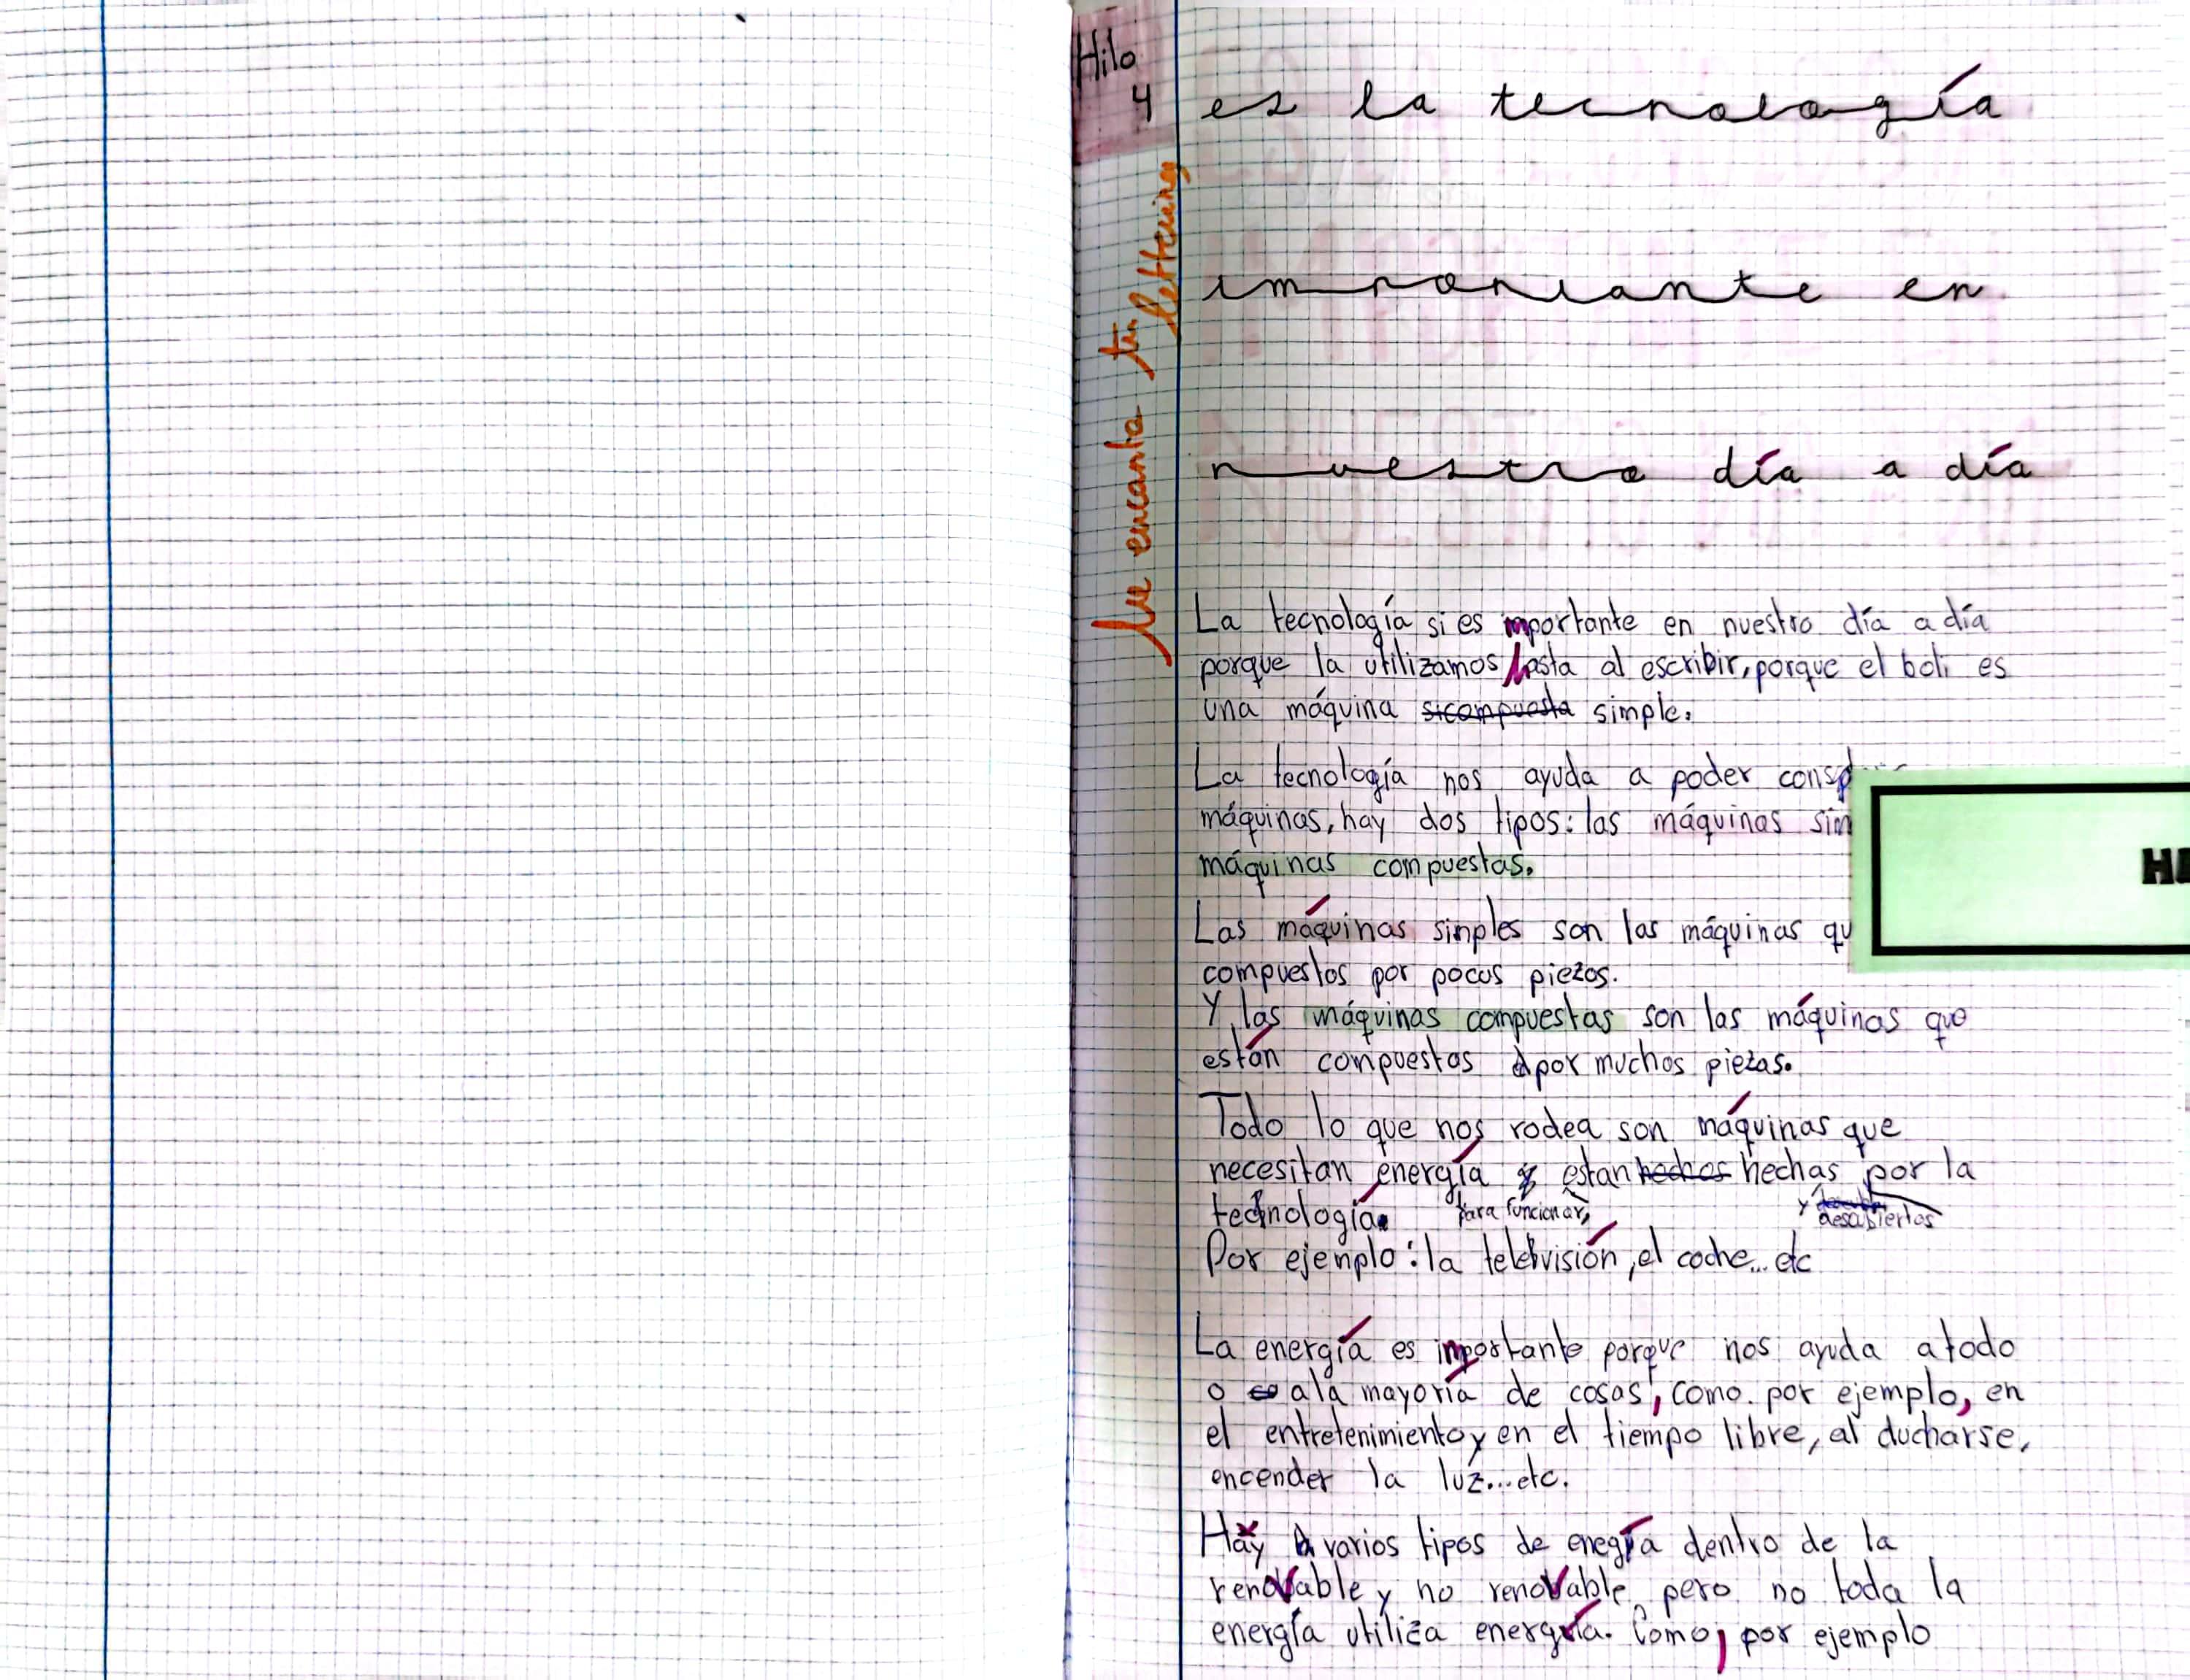 Hilo
4
Me encanta tu lettering
es la tecnología
importante en
nuestro día a día
La tecnología si es importante en nuestro día a día
porque la utilizamos hasta al escribir, porque el boli es
una máquina sicompuesta simple.
La tecnología nos ayuda a poder
máquinas, hay dos tipos: las máquinas sim
máquinas compuestas.
Las máquinas simples son las máquinas qu
compuestas por pocas piezas.
Y las máquinas compuestas son las máquinas que
están compuestas por muchas piezas.
Todo lo que nos rodea son máquinas que
necesitan energía y estan hechas hechas por la
tecnología.
para funcionar,
y desabiertas
Por ejemplo: la televisión, el coche... etc
La energía es importante porque nos ayuda a todo
o a la mayoría de cosas, como por ejemplo, en
el entretenimiento y en el tiempo libre, al ducharse,
encender la luz...etc.
Hay varios tipos de enegía dentro de la
renovable y no renovable, pero no toda la
energía utiliza energía. Como, por ejemplo
HE